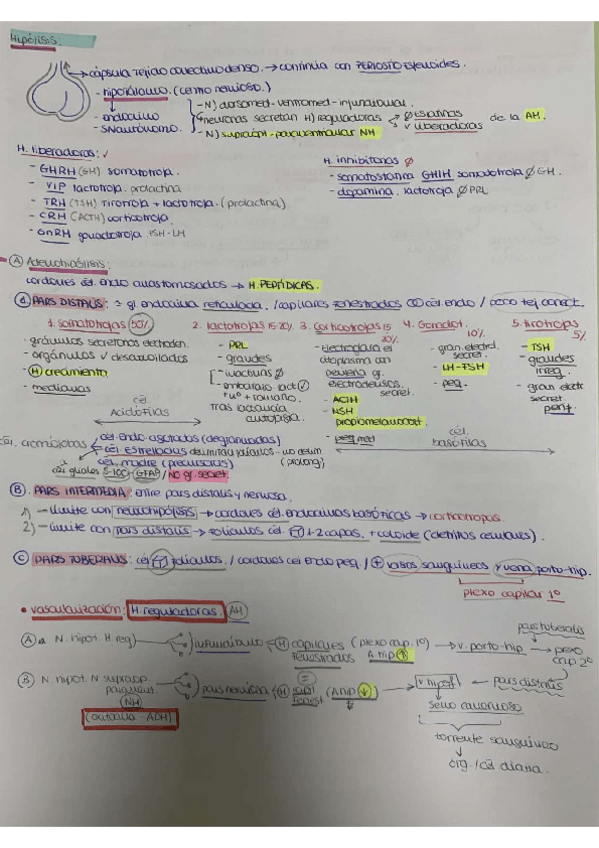 Hipófisis.
cápsula tejido conectivo denso. → continúa con PERIOSTIO esfenoides.
- hipotálamo. (centro nervioso.)
- endocrino
- SNautónomo.
- N) dorsomed - ventromed - infundibular.
neuronas secretan H) reguladoras
∅ estatinas
✓ liberadoras
de la AH.
- N) supraópt - paraventricular NH
H. liberadoras: ✓
- GHRH (GH) somatotroja.
- VIP lactotroja. prolactina
- TRH (TSH) tirotroja + lactotroja. (prolactina)
- CRH (ACTH) corticotroja.
- GnRH gonadotroja. FSH-LH
H. inhibitorias ∅
- somatostatina GHIH somatotroja ∅ GH.
- dopamina. lactotroja ∅ PRL
A Adenohipófisis:
cordones cél. endo anastomosados → H. PEPTÍDICAS.
1. PARS DISTALIS: gl. endocrina reticulada. / capilares fenestrados cél. endo / poco tej conect.
1. Somatotrojas 50%
- gránulos secretores electroden.
- orgánulos ✓ desarrollados
- H crecimiento
- medianas
2. lactotrojas 15-20%.
- PRL
- grandes
- inactivas ∅
- embarazo lact ✓
+ nº + tamaño.
Tras lactancia autofagia.
3. Corticotrojas 15 20%.
- electroclara el citoplasma con pequeño gr. electrodensos. secret.
- ACTH
- MSH
- peq med
4. Gonadot. 10%.
- gran. electrd. secret.
- LH-FSH
- peq.
5. tirotrojas 5%
- TSH
- grandes irreg.
- gran electr secret. perif.
cél. Acidófilas
cél. basófilas
cél. cromófobas
cél. endo agotadas (degranuladas)
cél. estrelladas
cél. madre (precursoras)
(prolong)
S-100 GFAP / NO gr. secret
B. PARS INTERMEDIA: entre pars distalis y nerviosa.
1) - límite con neurohipófisis → cordones cél. endocrinas basóficas → corticotropas.
2) - límite con pars distalis → folículos cél. 1-2 capas. + coloide (detritus celulares).
C PARS TUBERALIS: cél folículos. / cordones cel endo peq. / + vasos sanguíneos y vena porto-hip.
plexo capilar 1º
• vascularización: H. reguladoras. AH
A N. hipot. H. reg) infundíbulo H capilares (plexo cap. 1º) fenestrados A. hip ↑ → v. porto-hip → plexo cap 2º
pars tuberalis
B N. hipot. N supraóp. paravent. NH pars nerviosa H capil fenest (A hip ↓) → v hipof ← pars distalis
(oxitocina - ADH)
seno cavernoso
torrente sanguíneo
órg. / cél diana.